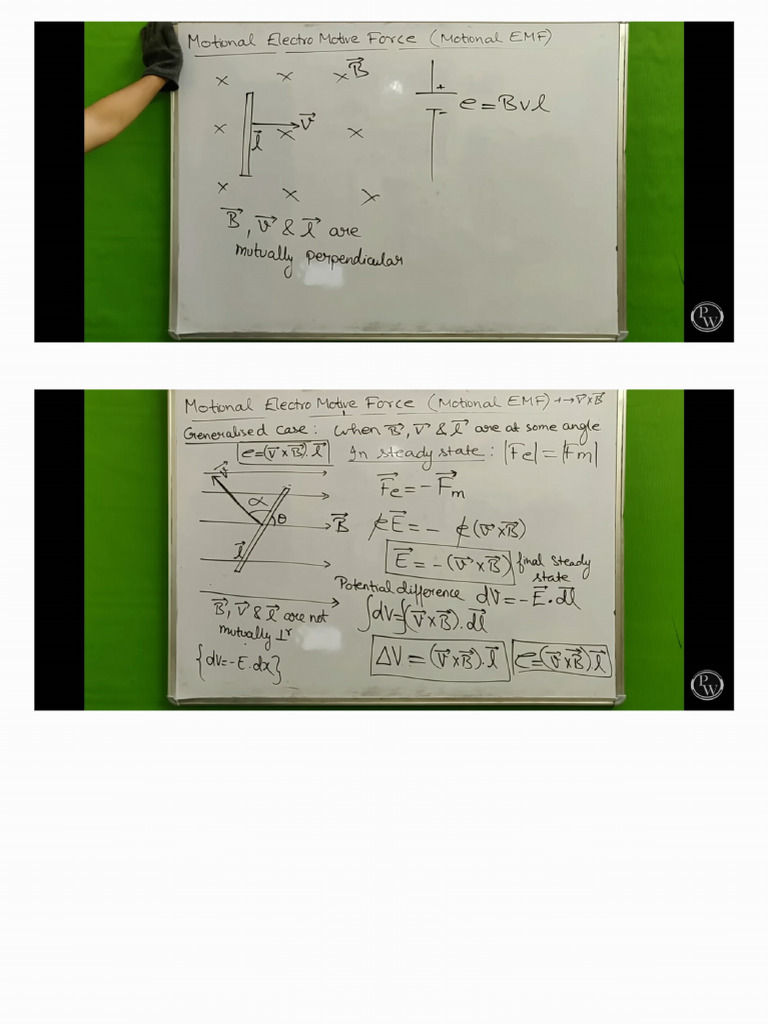 Motional Electro Motive Force (Motional EMF)
× × × B⃗
+
− e = Bvl
× × v⃗ ×
l⃗
× × ×
B⃗, v⃗ & l⃗ are
mutually perpendicular
PW
Motional Electro Motive Force (Motional EMF) +→ v⃗×B⃗
Generalised case: When B⃗, v⃗ & l⃗ are at some angle
e=(v⃗×B⃗).l⃗ In steady state: |F⃗e| = |F⃗m|
v⃗
F⃗e = −F⃗m
α θ B⃗
eE⃗ = − e(v⃗×B⃗)
l⃗
E⃗ = −(v⃗×B⃗) final steady state
Potential difference dV = −E⃗.dl⃗
B⃗, v⃗ & l⃗ are not
mutually ⊥r
∫dV=∫(v⃗×B⃗).dl⃗
{dV=−E.dx}
ΔV = (v⃗×B⃗).l⃗ e=(v⃗×B⃗).l⃗
PW